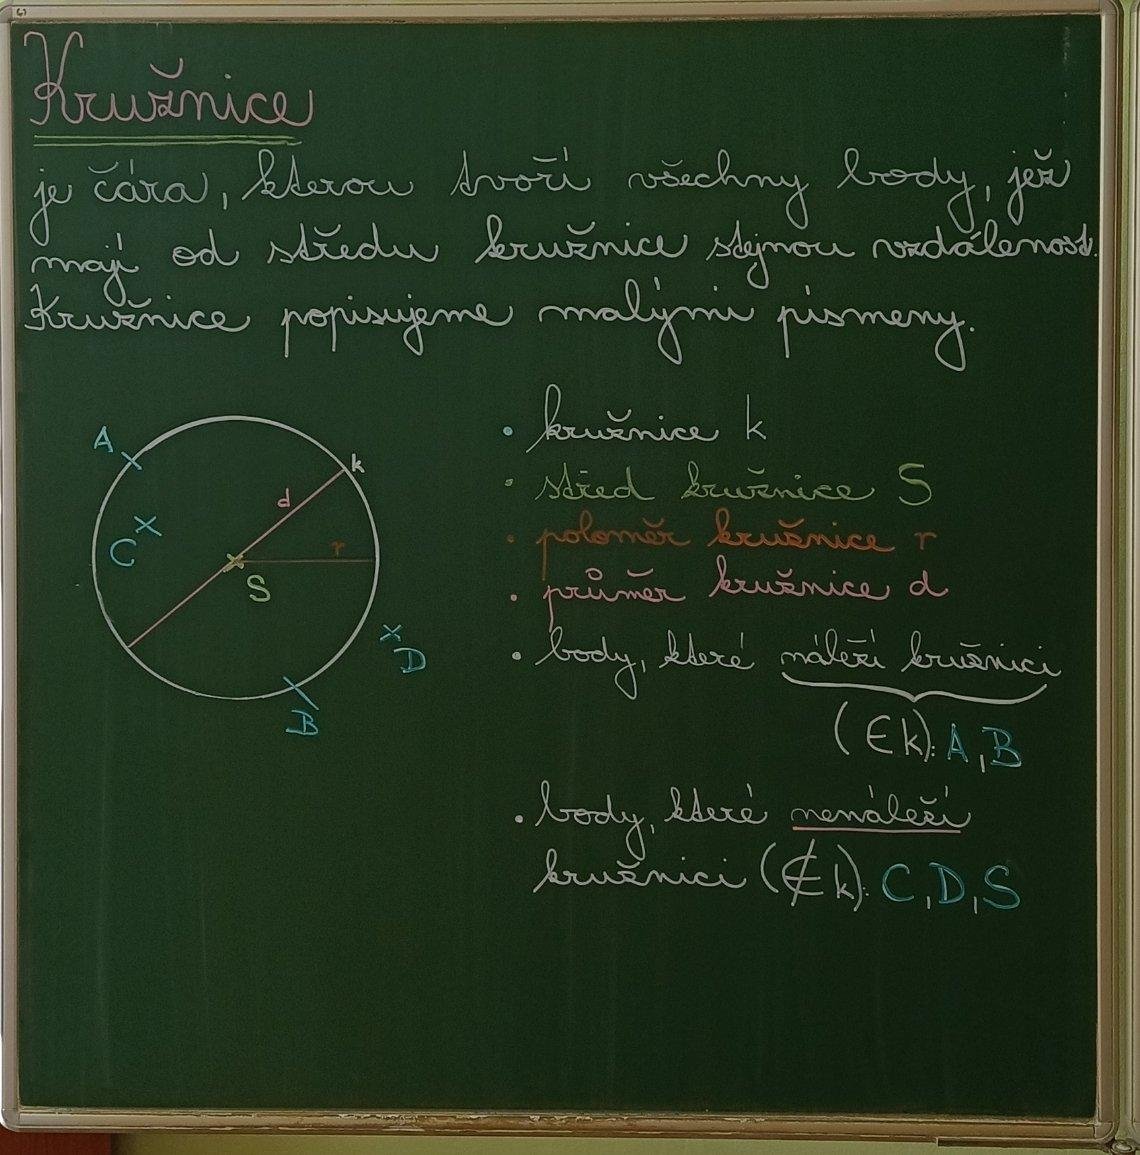 Kružnice
je čára, kterou tvoří všechny body, jež
mají od středu kružnice stejnou vzdálenost.
Kružnice popisujeme malými písmeny.
A
k
d
C
r
S
D
B
• kružnice k
• střed kružnice S
• poloměr kružnice r
• průměr kružnice d
• body, které náleží kružnici
(∈ k): A, B
• body, které nenáleží
kružnici (∉ k): C, D, S